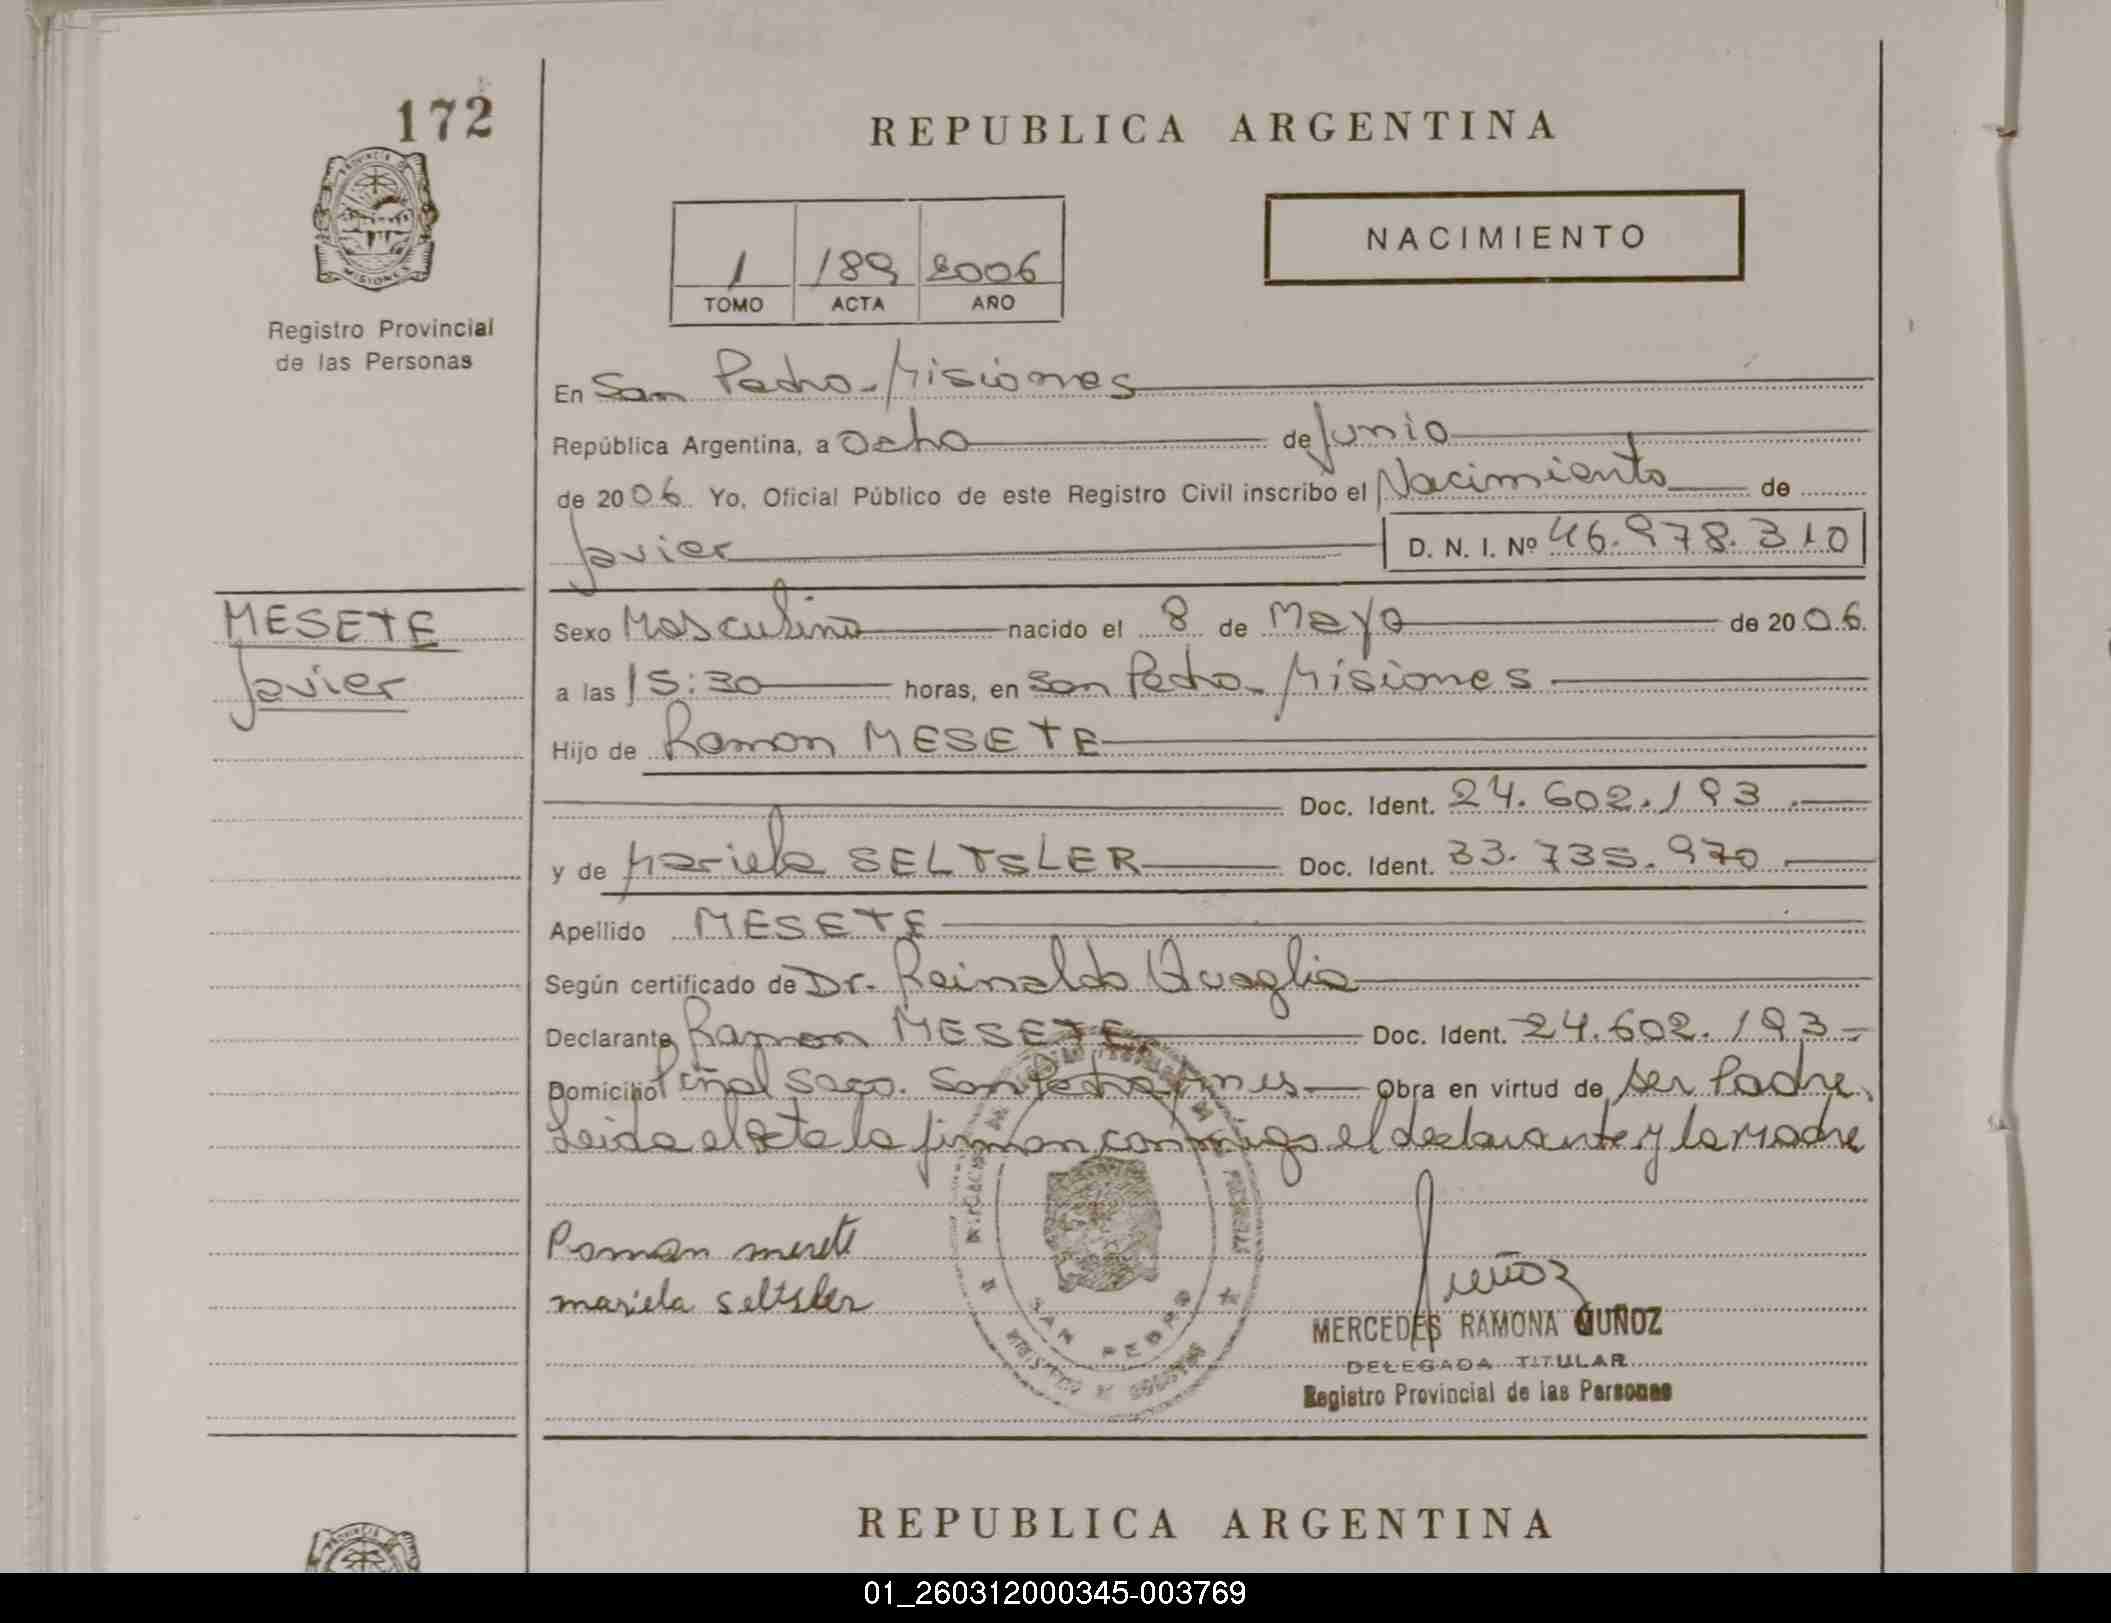 172
REPUBLICA ARGENTINA
PROVINCIA DE
MISIONES
Registro Provincial
de las Personas
1 189 2006
TOMO ACTA AÑO
NACIMIENTO
En San Pedro - Misiones
República Argentina, a Ocho de Junio
de 2006. Yo, Oficial Público de este Registro Civil inscribo el Nacimiento de
Javier D. N. I. Nº 46.978.310
MESETE
Javier
Sexo Masculino nacido el 8 de Mayo de 2006.
a las 15:30 horas, en San Pedro - Misiones
Hijo de Ramon MESETE
Doc. Ident. 24.602.193
y de Mariela SELTSLER Doc. Ident. 33.735.970
Apellido MESETE
Según certificado de Dr. Reinaldo Quaglia
Declarante Ramon MESETE Doc. Ident. 24.602.193
Domicilio Piñal San Pedro Mnes Obra en virtud de ser Padre.
Leida el Acta la firman conmigo el declarante y la Madre
Roman mesete
mariela seltsler
SAN PEDRO
Muñoz
MERCEDES RAMONA MUÑOZ
DELEGADA TITULAR
Registro Provincial de las Personas
REPUBLICA ARGENTINA
PROVINCIA DE
01_260312000345-003769